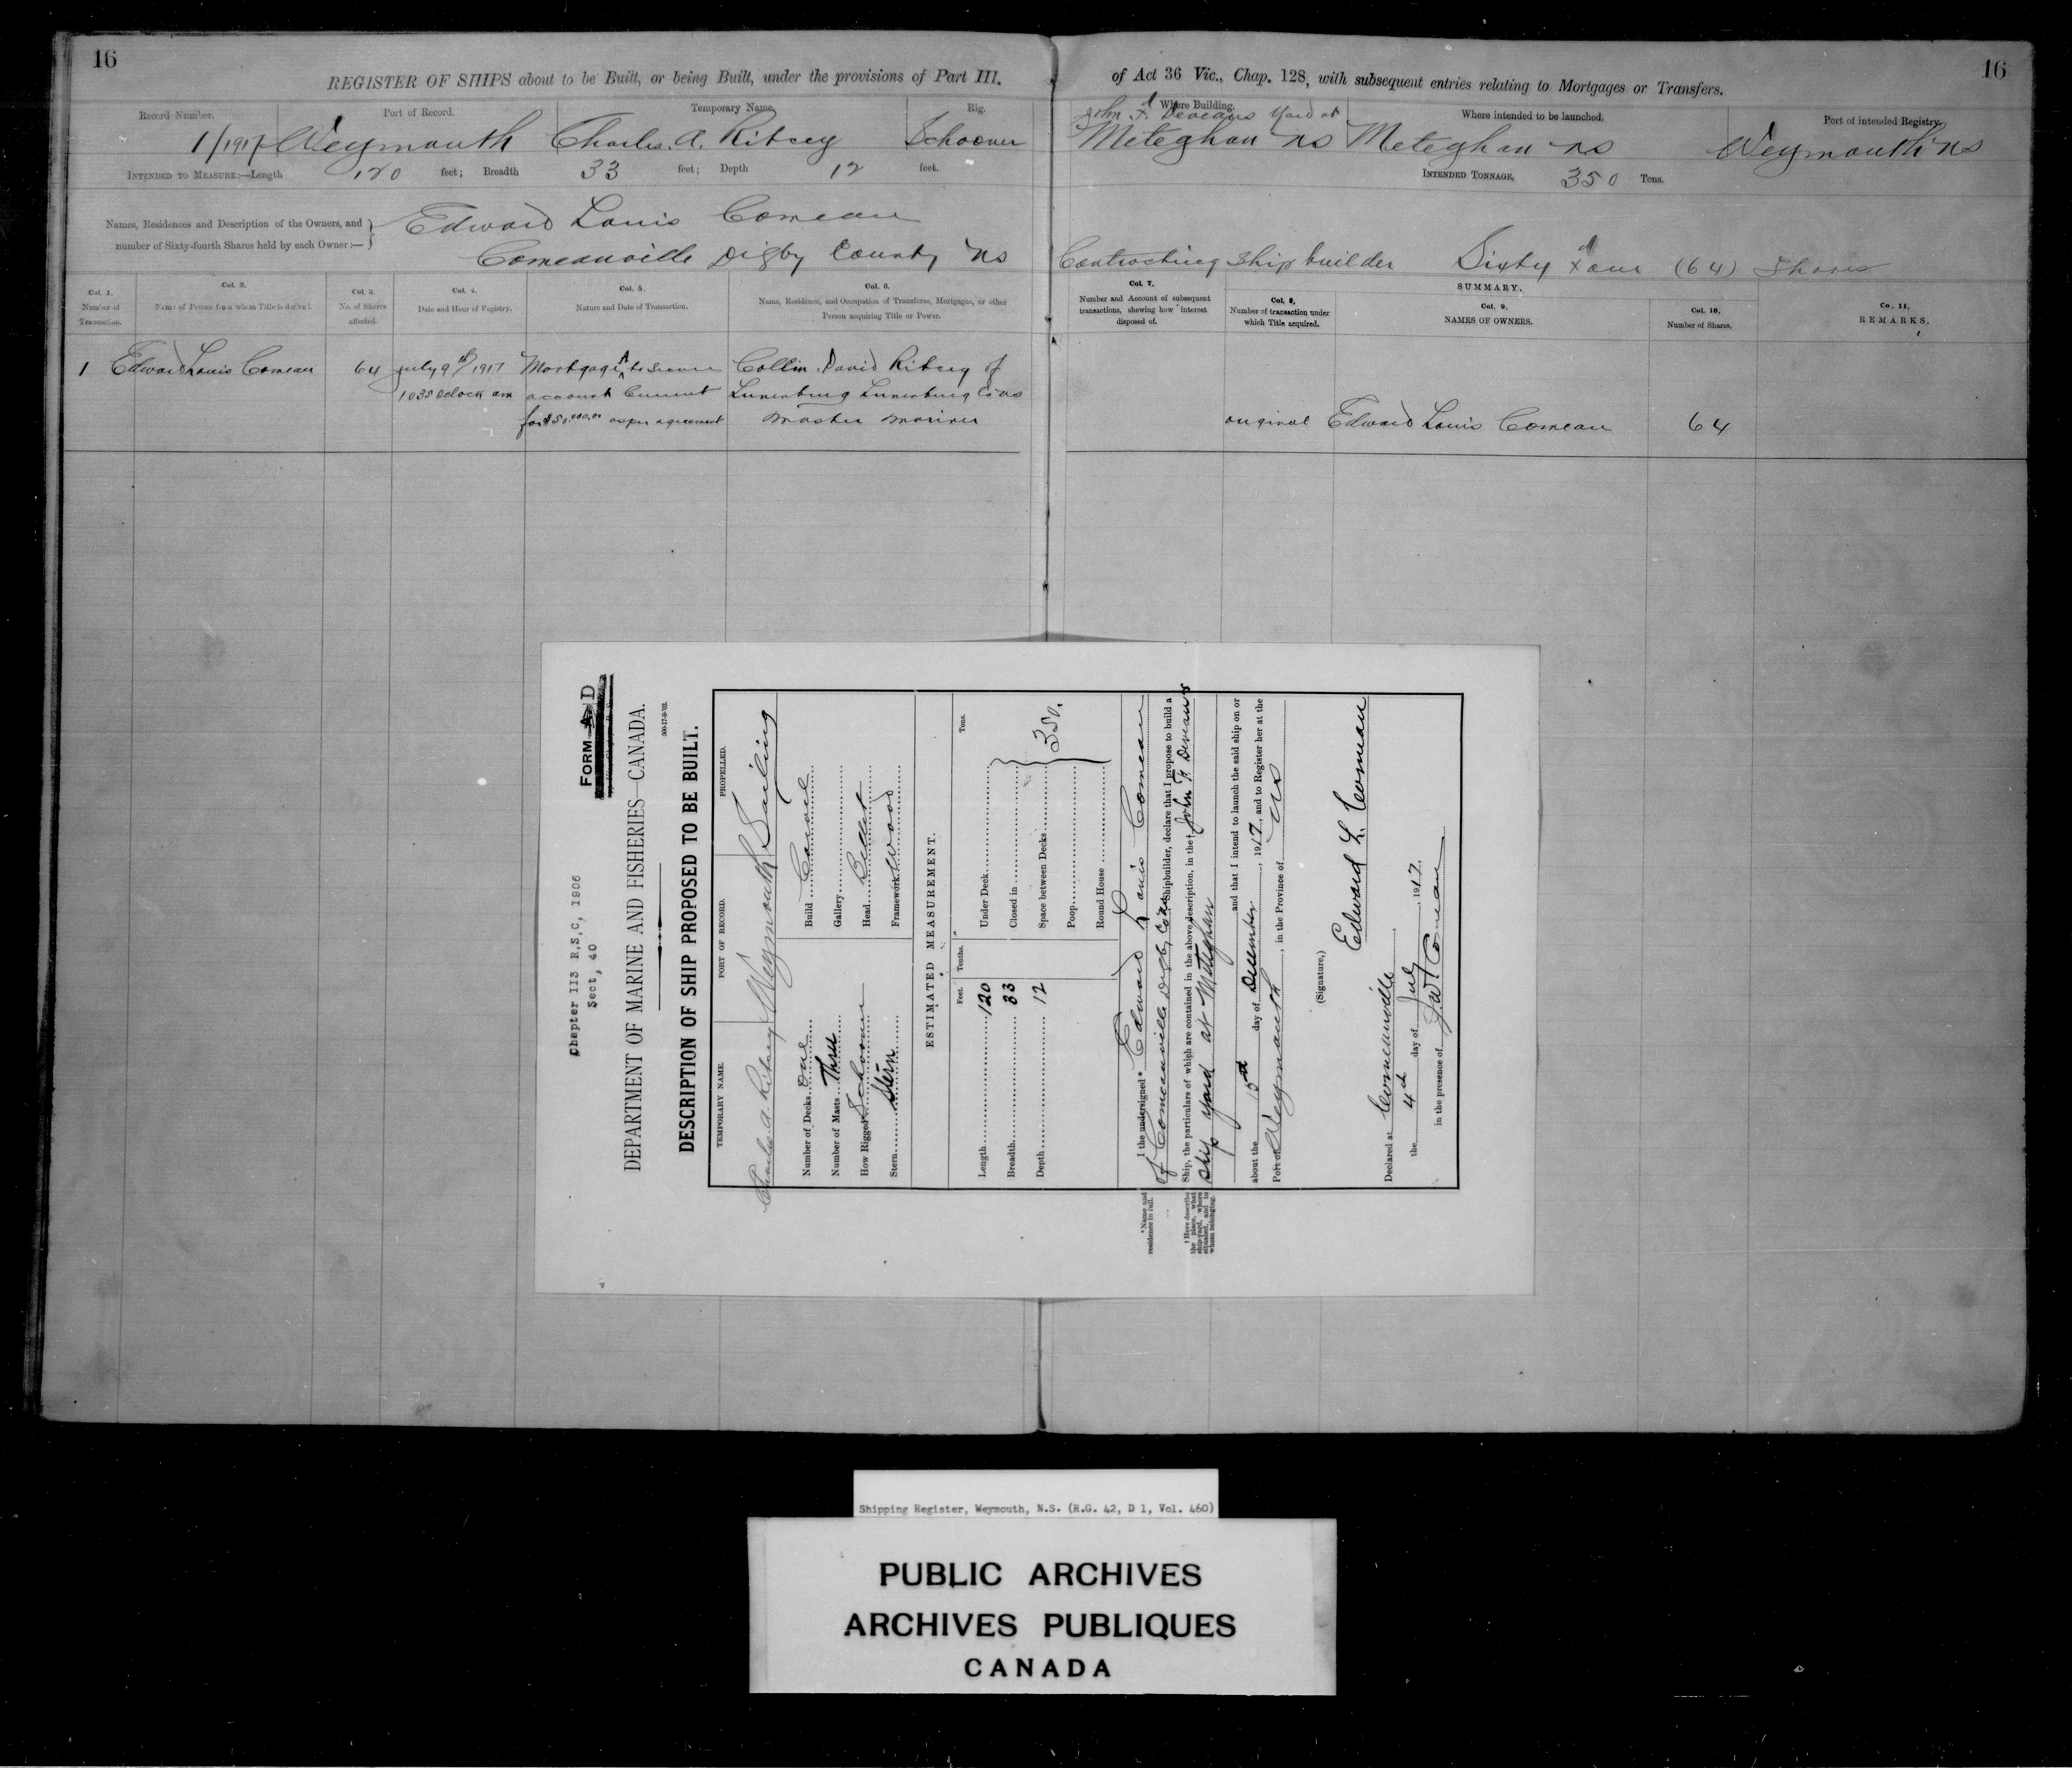 16
REGISTER OF SHIPS about to be Built, or being Built, under the provisions of Part III.
Record Number. Port of Record. Temporary Name, Rig.
1/1917 Weymouth Charles. A. Ritcey Schooner
INTENDED TO MEASURE:—Length 120 feet; Breadth 33 feet; Depth 12 feet.
Names, Residences and Description of the Owners, and
number of Sixty-fourth Shares held by each Owner:—
Edward Louis Comeau
Comeauville Digby County NS
Col. 1. Number of Transaction.
Col. 2. Name of Person from whom Title is derived.
Col. 3. No. of Shares affected.
Col. 4. Date and Hour of Registry.
Col. 5. Nature and Date of Transaction.
Col. 6. Name, Residence, and Occupation of Transferee, Mortgagee, or other Person acquiring Title or Power.
1 Edward Louis Comeau 64 July 9th 1917 Mortgage A to secure Collin David Ritcey of
10 35 oclock am account current Lunenburg Lunenburg Co NS
for $50,000.00 as per agreement master mariner
16
of Act 36 Vic., Chap. 128, with subsequent entries relating to Mortgages or Transfers.
Where Building. Where intended to be launched. Port of intended Registry.
John F. Deveaus Yard at
Meteghan NS Meteghan NS Weymouth NS
INTENDED TONNAGE, 350 Tons.
Contracting Ship builder Sixty four (64) Shares
Col. 7. Number and Account of subsequent transactions, shewing how interest disposed of.
SUMMARY.
Col. 8, Number of transaction under which Title acquired.
Col. 9. NAMES OF OWNERS.
Col. 10. Number of Shares.
Co. 11, REMARKS,
original Edward Louis Comeau 64
Chapter 113 R,S,C, 1906
Sect, 40
FORM A D
DEPARTMENT OF MARINE AND FISHERIES—CANADA.
500-17-9-'03.
DESCRIPTION OF SHIP PROPOSED TO BE BUILT.
TEMPORARY NAME. PORT OF RECORD. PROPELLED.
Charles A. Ritcey Weymouth Sailing
Number of Decks One Build Carvel
Number of Masts Three Gallery
How Rigged Schooner Head Billet
Stern Stern Framework Wood
ESTIMATED MEASUREMENT.
Feet. Tenths. Tons.
Length 120 Under Deck
Breadth 33 Closed in
Depth 12 Space between Decks 350.
Poop
Round House
I the undersigned* Edward Louis Comeau
of Comeauville Digby Co NS Shipbuilder, declare that I propose to build a
Ship, the particulars of which are contained in the above description, in the † John F Deveaus
ship yard at Meteghan
and that I intend to launch the said ship on or
about the 15th day of December, 1917, and to Register her at the
Port of Weymouth, in the Province of NS
(Signature,) Edward L. Comeau
Declared at Comeauville
the 4th day of July, 1917
in the presence of
* Name and residence in full.
† Here describe the place, what ship-yard, where situated, and to whom belonging.
Shipping Register, Weymouth, N.S. (R.G. 42, D 1, Vol. 460)
PUBLIC ARCHIVES
ARCHIVES PUBLIQUES
CANADA